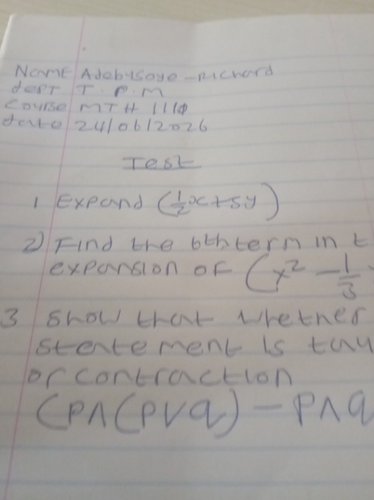 Name Adebisoye - Richard
dept T.P.M
course MTH 111
date 24/06/2026
Test
1 Expand (1/2x+5y)
2) Find the 6th term in t
expansion of (x² - 1/3
3 Show that whether
statement is tau
or contraction
(P∧(P∨q) - P∧q